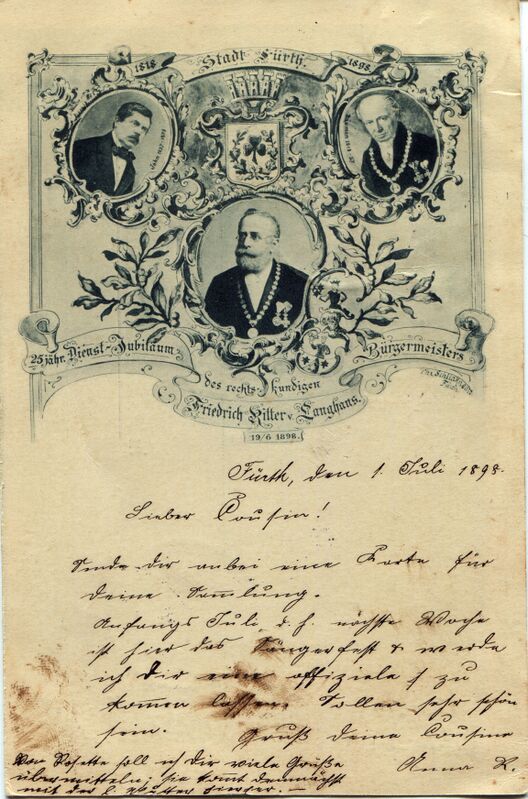 1818 Stadt Fürth. 1898.
25jähr. Dienst-Jubiläum
des rechts-kundigen
Bürgermeisters
Friedrich Ritter v. Langhans.
19/6 1898.
Fürth, den 1. Juli 1898.
Lieber Cousin!
Sende dir anbei eine Karte für
deine Sammlung.
Anfangs Juli d. h. nächste Woche
ist hier das Sängerfest & werde
ich Dir eine offiziele zu
kommen lassen. Sollen sehr schön
sein. Gruß deine Cousine
Anna R.
Von Rosette soll ich dir viele Grüße
übermitteln; sie komt demnächst
mit der l. hierher. —